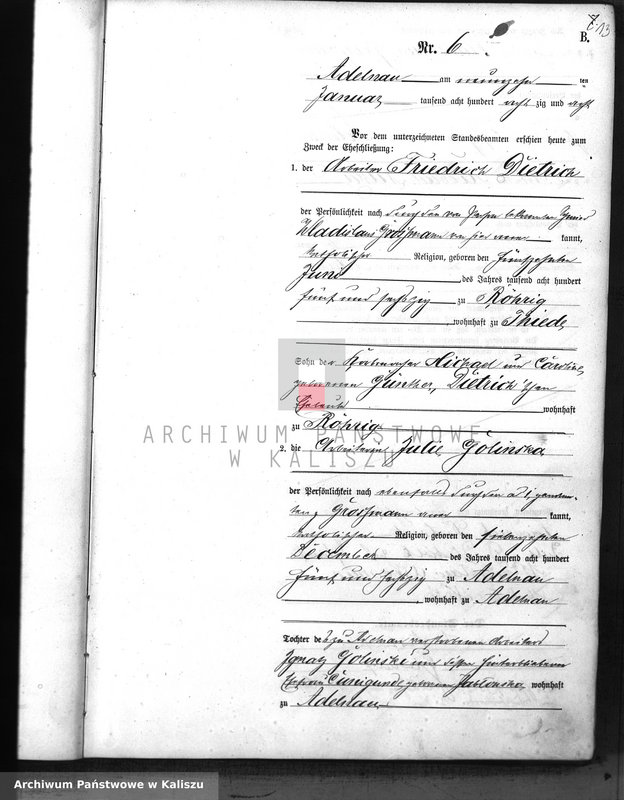 7. 13
B.
Nr. 6.
Adelnau am neunzehn ten
Januar tausend acht hundert acht zig und acht
Vor dem unterzeichneten Standesbeamten erschien heute zum
Zweck der Eheschließung:
1. der Arbeiter Friedrich Dietrich
der Persönlichkeit nach durch den von Person bekannten
Wladislaus Großmann von hier kannt,
katholischer Religion, geboren den fünfzehnten
Juni des Jahres tausend acht hundert
fünf und sechszig zu Röhrig
, wohnhaft zu Thiede
Sohn der Korbmacher Michael und Caroline,
geborenen Günther, Dietrich'schen
Eheleute wohnhaft
zu Röhrig
2. die Arbeiterin Julie Golinska
der Persönlichkeit nach ebenfalls durch den ad 1, genann-
ten, Großmann kannt,
katholischer Religion, geboren den siebenzehnten
December des Jahres tausend acht hundert
fünf und sechszig zu Adelnau
, wohnhaft zu Adelnau
Tochter des zu Adelnau verstorbenen Arbeiters
Ignatz Golinski und dessen hinterbliebenen
Ehefrau Cunigunde geborenen Jablonska wohnhaft
zu Adelnau
ARCHIWUM PAŃSTWOWE
W KALISZU
Archiwum Państwowe w Kaliszu